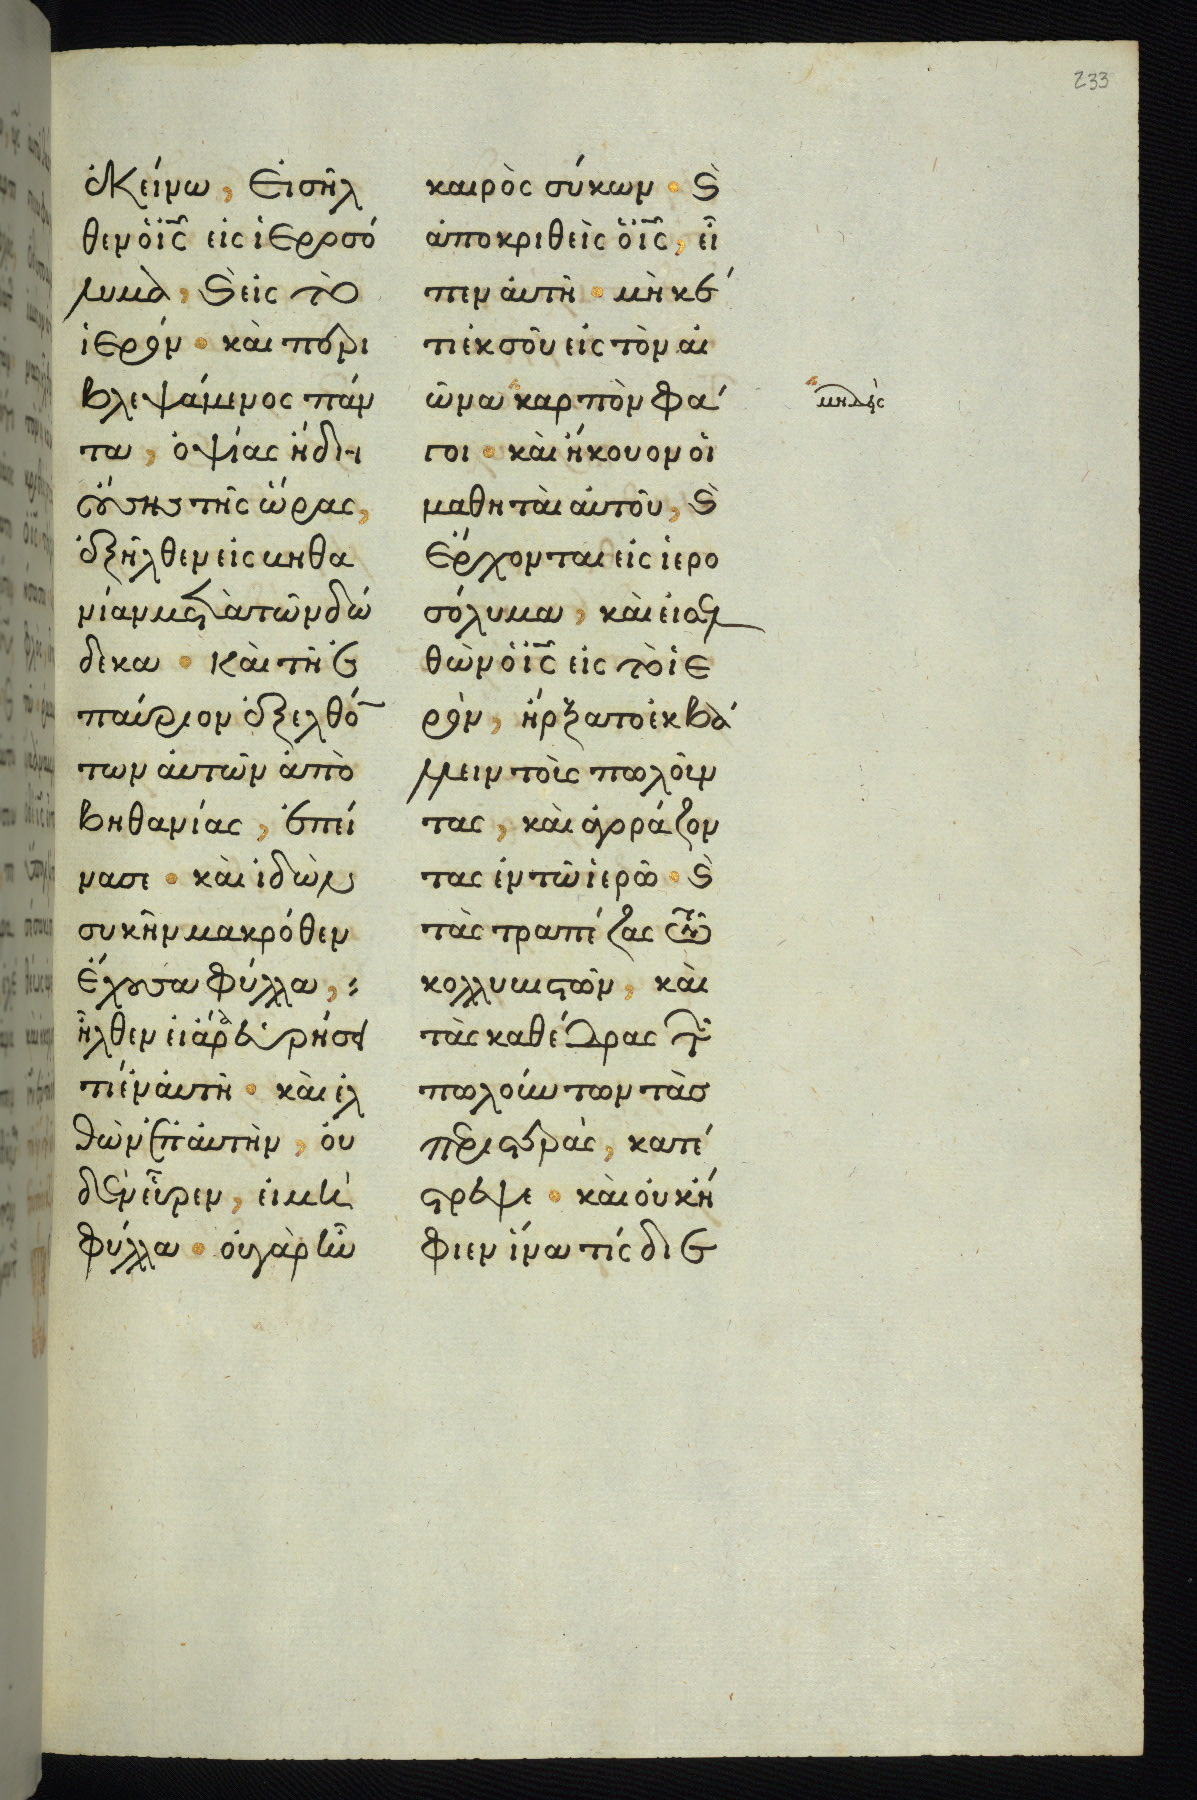 233
ἐκείνω, Εἰσῆλ
θεν ὁ ἰς εἰς ἱεροσό
λυμα, καὶ εἰς τὸ
ἱερόν · καὶ περι
βλεψάμενος πάν
τα, ὀψίας ἤδη
οὔσης τῆς ὥρας,
ἐξῆλθεν εἰς βηθα
νίαν μετὰ τῶν δώ
δεκα · Καὶ τῆ ἐ
παύριον ἐξελθό
των αὐτῶν ἀπὸ
βηθανίας, ἐπεί
νασε · καὶ ἰδὼν
συκῆν μακρόθεν
ἔχουσα φύλλα,
ἦλθεν εἰ ἄρα εὑρήσει
τι ἐν αὐτῆ · καὶ ἐλ
θὼν ἐπ' αὐτὴν, οὐ
δὲν εὗρεν, εἰ μὴ
φύλλα · οὐ γὰρ ἦν
καιρὸς σύκων · καὶ
ἀποκριθεὶς ὁ ἰς, εἶ
πεν αὐτῆ · μηκέ
τι ἐκ σοῦ εἰς τὸν αἰ
ῶνα καρπὸν φά
γοι · καὶ ἤκουον οἱ
μαθηταὶ αὐτοῦ, καὶ
Ἔρχονται εἰς ἱερο
σόλυμα, καὶ εἰσελ
θὼν ὁ ἰς εἰς τὸ ἱε
ρὸν, ἤρξατο ἐκβά
λλειν τοὺς πωλοῦν
τας, καὶ ἀγοράζον
τας ἐν τῶ ἱερῶ · καὶ
τὰς τραπέζας τῶν
κολλυβιστῶν, καὶ
τὰς καθέδρας τῶν
πωλούντων τὰς
περιστερὰς, κατέ
στρεψε · καὶ οὐκ ἤ
φιεν ἵνα τίς διε
μηδεὶς